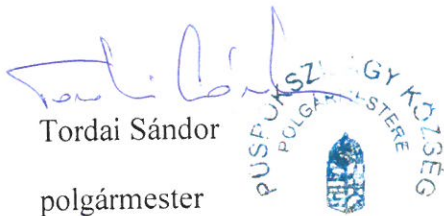 Tordai Sándor
polgármester
PÜSPÖKSZILÁGY KÖZSÉG
POLGÁRMESTERE